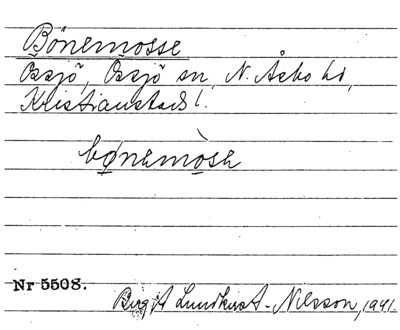 Bönemosse
Össjö, Össjö sn, N. Åsbo hd,
Kristianstads l.
bønemòsa
Nr 5508.
Birgit Lundkvist-Nilsson, 1941.